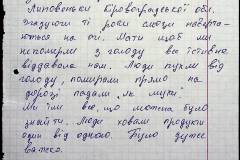 Липовеньки Кіровоградської обл.
Згадуючи ті роки сльози наверта-
ються на очі. Мати щоб ми
непомерли з голоду все їстивне
віддавала нам. Люди пухли від
голоду, помирали прямо на
дорозі падали як мухи.
Ми їли все, що можна було
знайти. Люди ховали продукти
один від одного. Було дуже
важко.